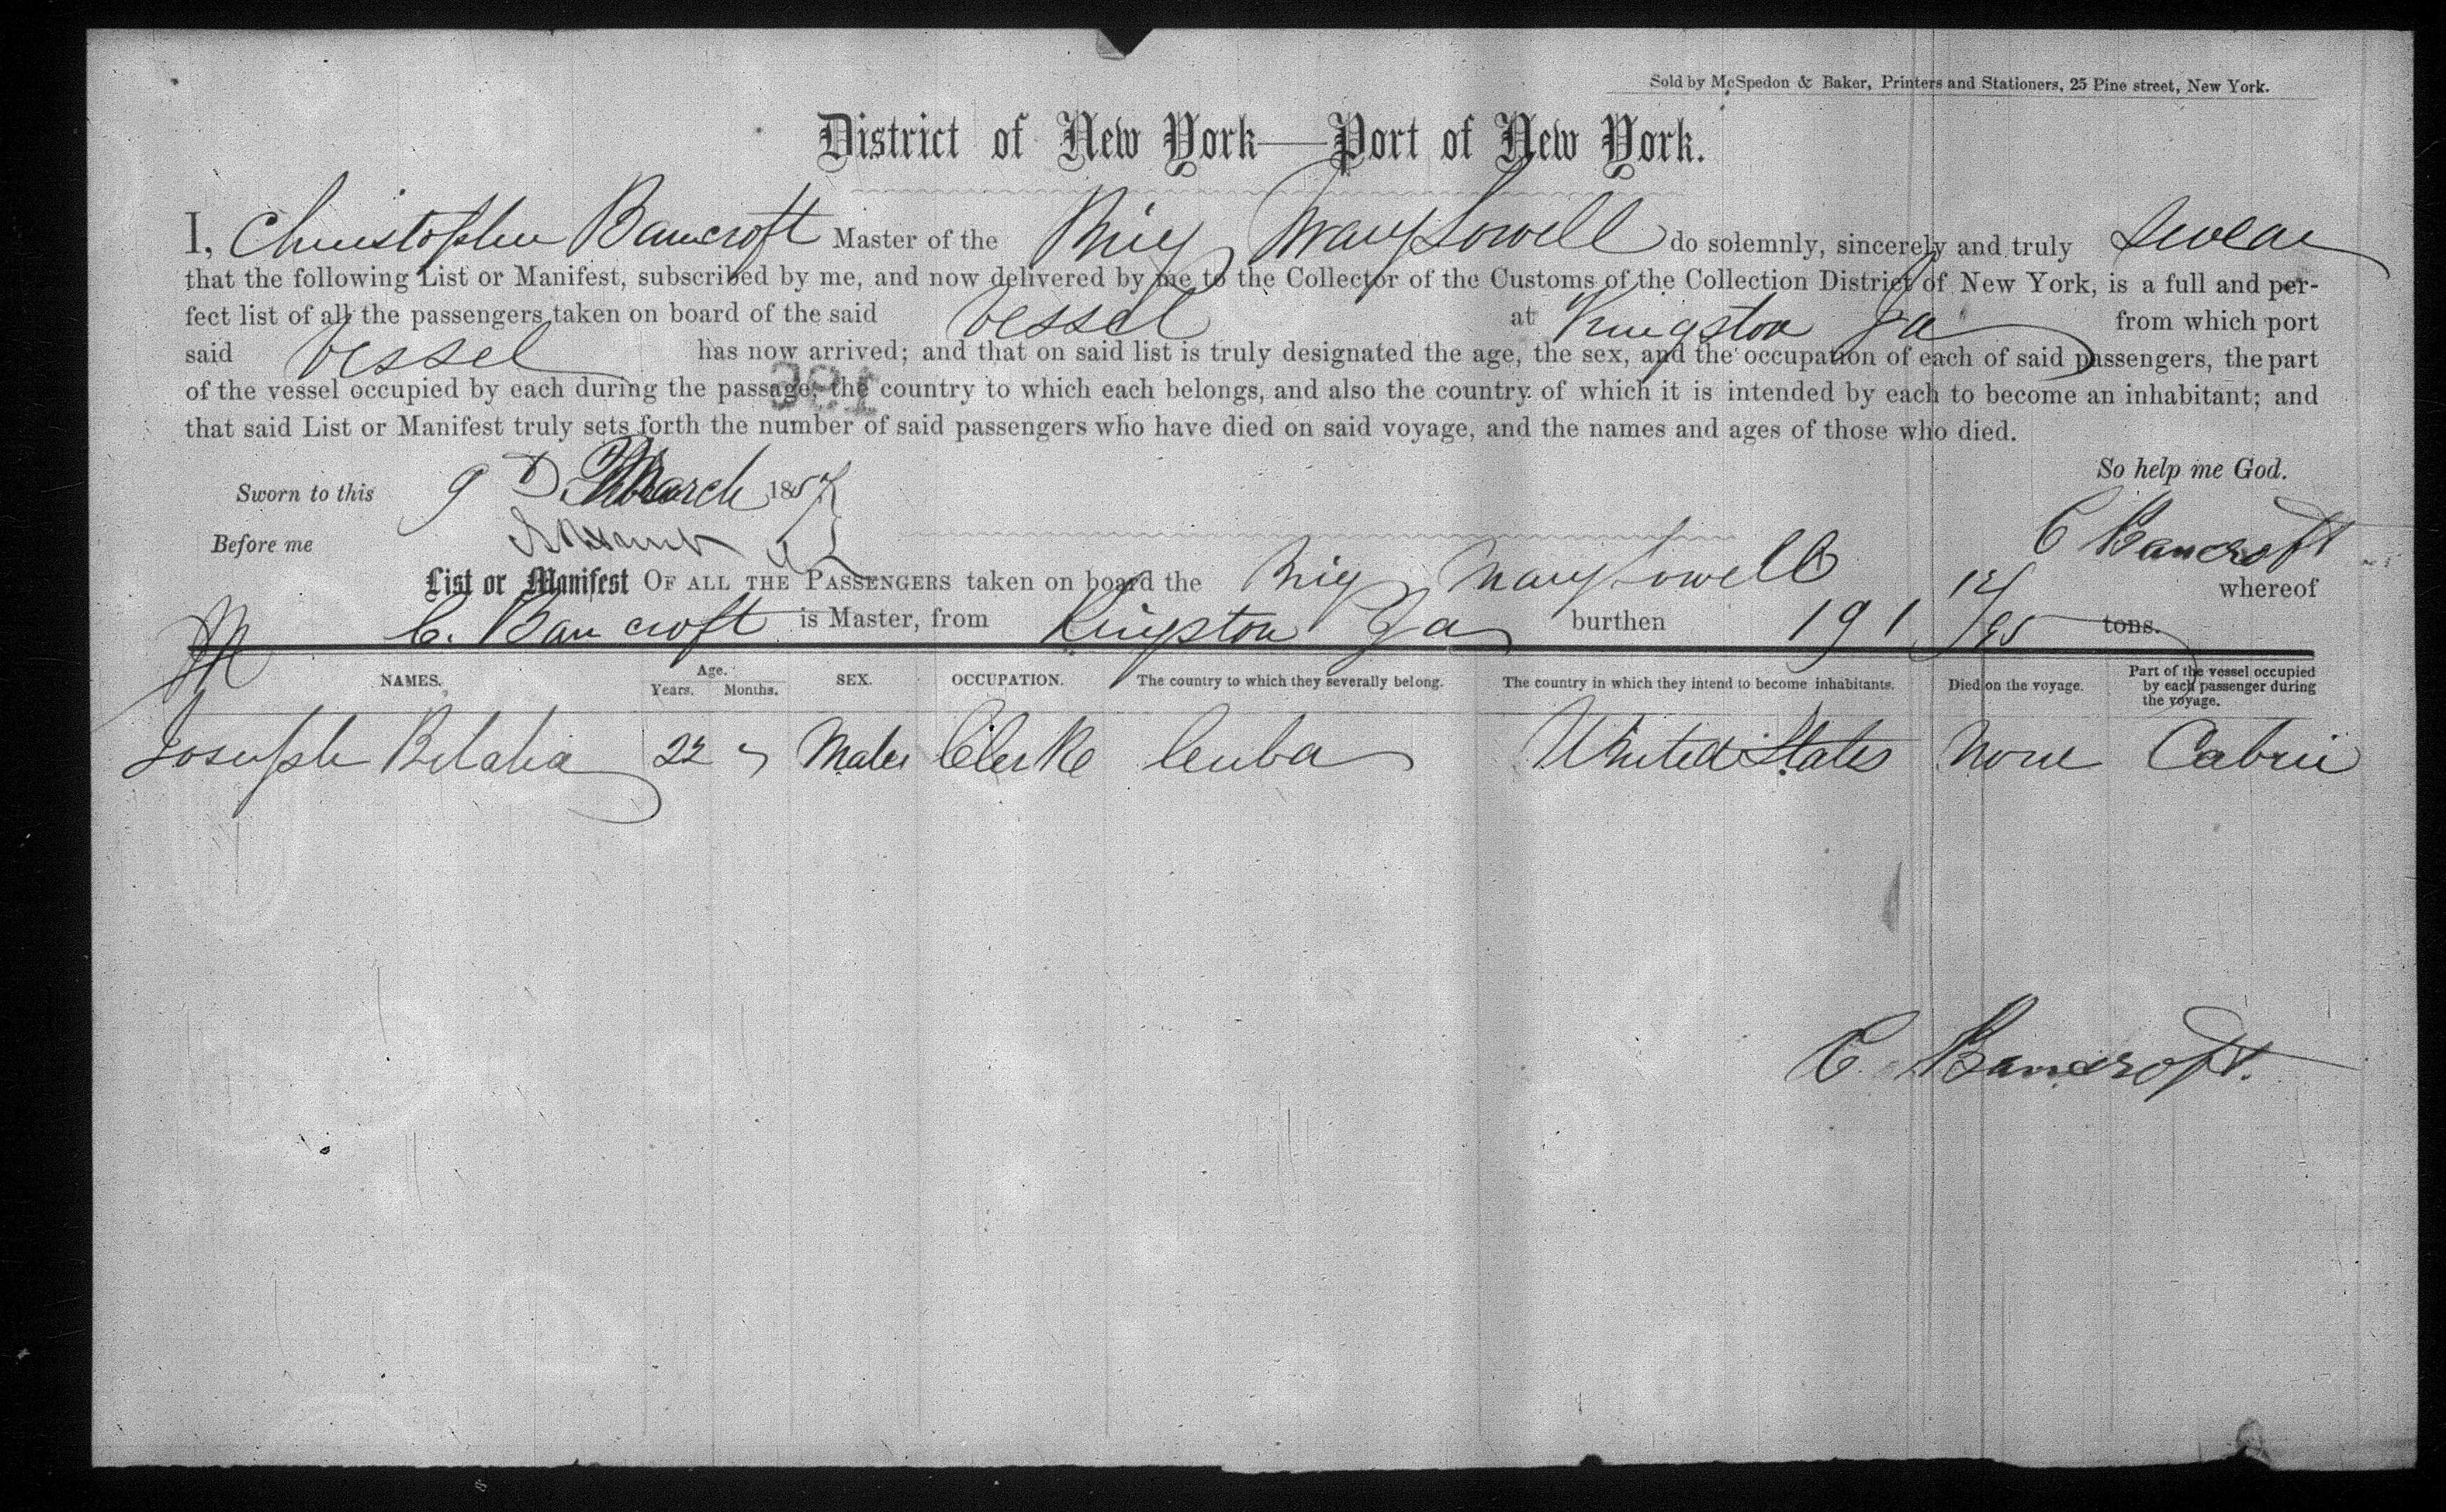 Sold by McSpedon & Baker, Printers and Stationers, 25 Pine street, New York.
District of New York—Port of New York.
I, Christopher Bancroft Master of the Brig Mary Lowell do solemnly, sincerely and truly Swear
that the following List or Manifest, subscribed by me, and now delivered by me to the Collector of the Customs of the Collection District of New York, is a full and per-
fect list of all the passengers taken on board of the said Vessel at Kingston Ja from which port
said Vessel has now arrived; and that on said list is truly designated the age, the sex, and the occupation of each of said passengers, the part
of the vessel occupied by each during the passage, the country to which each belongs, and also the country of which it is intended by each to become an inhabitant; and
that said List or Manifest truly sets forth the number of said passengers who have died on said voyage, and the names and ages of those who died.
So help me God.
Sworn to this 9 March 1857
Before me C Bancroft
List or Manifest OF ALL THE PASSENGERS taken on board the Brig Mary Lowell whereof
C. Bancroft is Master, from Kingston Ja burthen 191 /95 tons.
NAMES. Age. Years. Months. SEX. OCCUPATION. The country to which they severally belong. The country in which they intend to become inhabitants. Died on the voyage. Part of the vessel occupied by each passenger during the voyage.
Joseph 22 Male Clerke Cuba United States None Cabin
C. Bancroft.